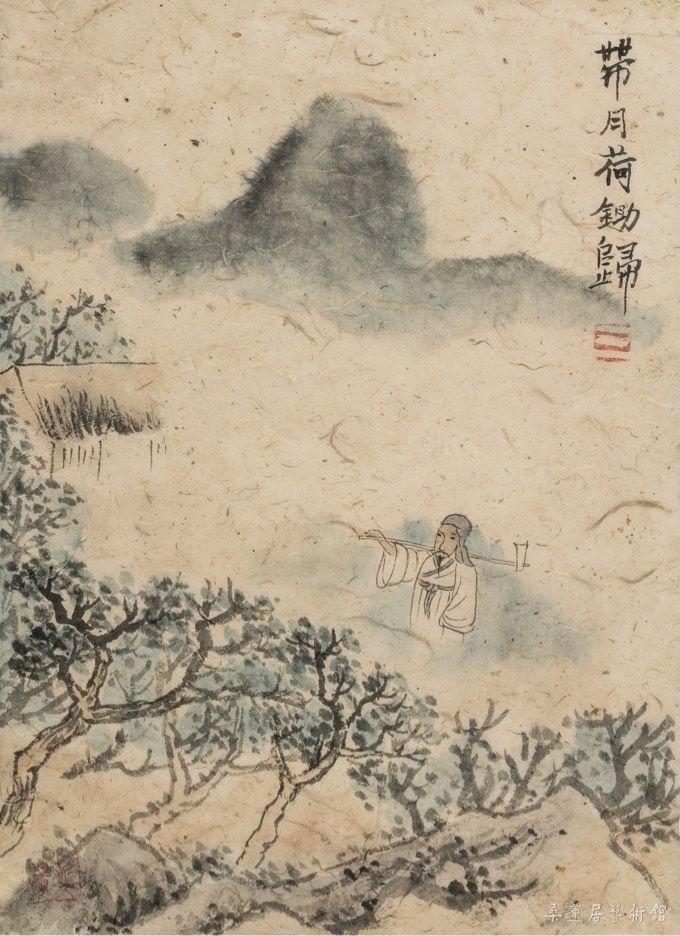 帶月荷鋤歸
桑蓮居藝術館